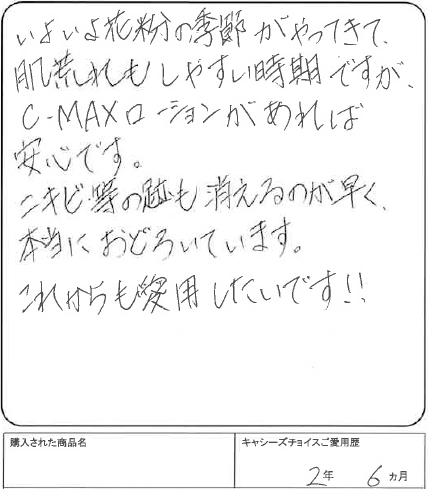 いよいよ花粉の季節がやってきて、
肌荒れもしやすい時期ですが、
C-MAXローションがあれば
安心です。
ニキビ等の跡も消えるのが早く、
本当におどろいています。
これからも愛用したいです!!
購入された商品名
キャシーズチョイスご愛用歴
2年 6ヵ月